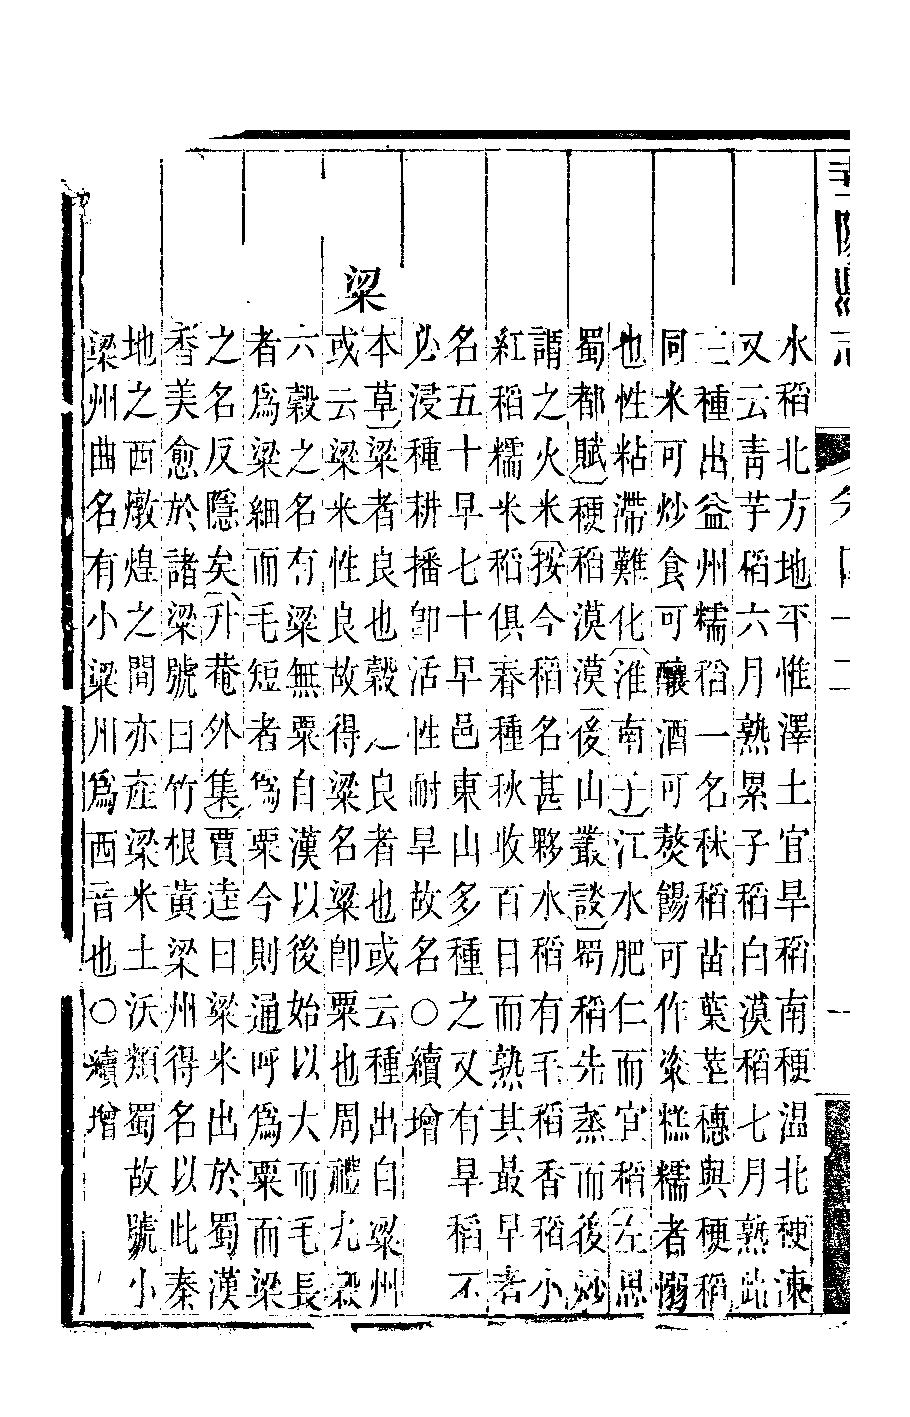 華陽縣志 卷四十二 一
水稻北方地平惟澤土宜旱稻南稉温北稉凍
又云靑芋稻六月熟累子稻白漠稻七月熟此
三種出益州糯稻一名秫稻苗葉莖穗與稉稻
同米可炒食可釀酒可熬餳可作粢糕糯者懦
也性粘滯難化淮南子江水肥仁而宜稻左思
蜀都賦稉稻漠漠後山叢談蜀稻先蒸而後炒
謂之火米按今稻名甚夥水稻有毛稻香稻小
紅稻糯米稻俱春種秋收百日而熟其最早者
名五十早七十早邑東山多種之又有旱稻不
必浸種耕播卽活性耐旱故名○續增
粱
本草粱者良也穀之良者也或云種出自粱州
或云粱米性良故得粱名粱卽粟也周禮九穀
六穀之名有粱無粟自漢以後始以大而毛長
者爲粱細而毛短者爲粟今則通呼爲粟而粱
之名反隱矣升菴外集賈逵曰粱米出於蜀漢
香美愈於諸粱號曰竹根黃粱州得名以此秦
地之西燉煌之間亦產粱米土沃類蜀故號小
粱州曲名有小粱州爲西音也○續增